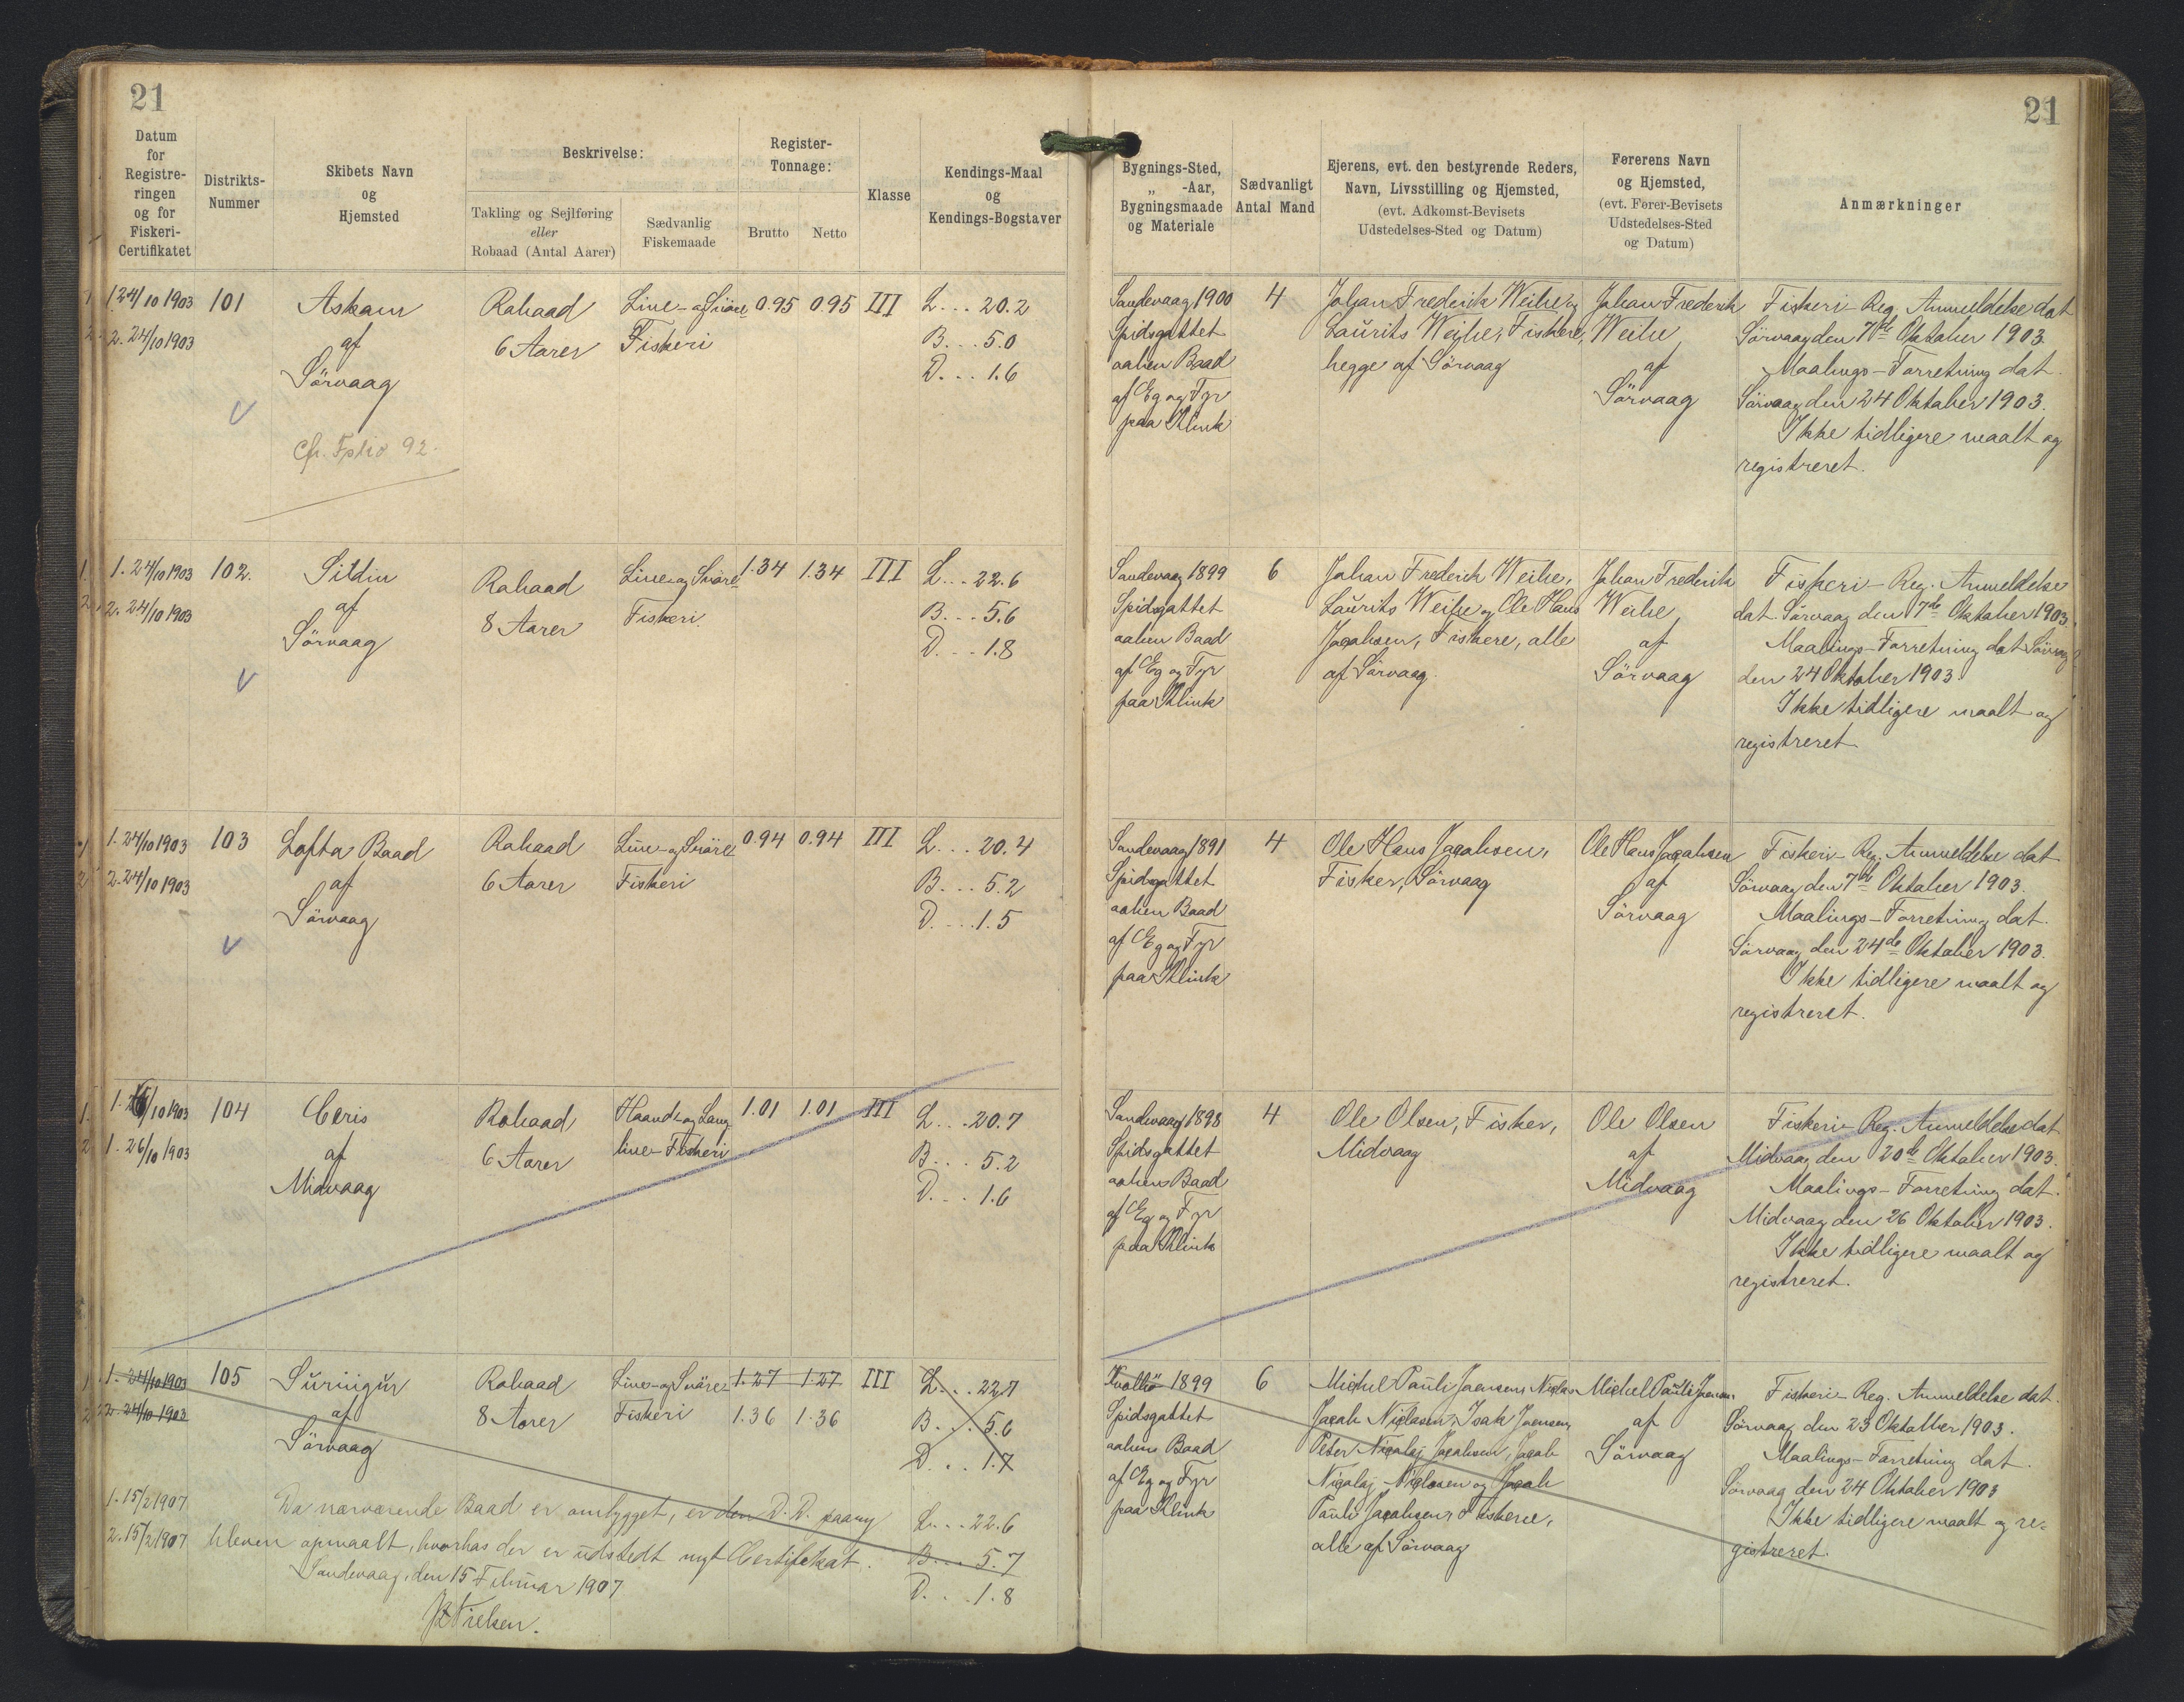 21
21
Datum
for
Registre-
ringen
og for
Fiskeri-
Certifikatet
Distrikts-
Nummer
Skibets Navn
og
Hjemsted
Beskrivelse:
Takling og Sejlføring
eller
Robaad (Antal Aarer)
Sædvanlig
Fiskemaade
Register-
Tonnage:
Brutto Netto
Klasse
Kendings-Maal
og
Kendings-Bogstaver
Bygnings-Sted,
„ -Aar,
Bygningsmaade
og Materiale
Sædvanligt
Antal Mand
Ejerens, evt. den bestyrende Reders,
Navn, Livsstilling og Hjemsted,
(evt. Adkomst-Bevisets
Udstedelses-Sted og Datum)
Førerens Navn
og Hjemsted,
(evt. Fører-Bevisets
Udstedelses-Sted
og Datum)
Anmærkninger
1. 24/10 1903
2. 24/10 1903
101
Askam
af
Sörvaag
Cfr. Folio 92.
Robaad
6 Aarer
Line- og Snöre
Fiskeri
0.95 0.95 III
L... 20.2
B... 5.0
D... 1.6
Sandevaag 1900
Spidsgattet
aaben Baad
af Eg og Fyr
paa Klink
4
Johan Frederik Weihe og
Laurits Weihe, Fiskere,
begge af Sörvaag
Johan Frederik
Weihe
af
Sörvaag
Fiskeri-Reg. Anmeldelse dat
Sörvaag den 7de Oktober 1903.
Maalings-Forretning dat.
Sörvaag den 24 Oktober 1903.
Ikke tidligere maalt og
registreret.
1. 24/10 1903
2. 24/10 1903
102.
Sildin
af
Sörvaag
Robaad
8 Aarer
Line- og Snöre
Fiskeri.
1.34 1.34 III
L... 22.6
B... 5.6
D... 1.8
Sandevaag 1899
Spidsgattet
aaben Baad
af Eg og Fyr
paa Klink
6
Johan Frederik Weihe,
Laurits Weihe og Ole Hans
Jacobsen, Fiskere, alle
af Sörvaag.
Johan Frederik
Weihe
af
Sörvaag
Fiskeri-Reg. Anmeldelse
dat. Sörvaag den 7de Oktober 1903.
Maalings-Forretning dat Sörvaag
den 24 Oktober 1903.
Ikke tidligere maalt og
registreret.
1. 24/10 1903
2. 24/10 1903
103
Lofta Baad
af
Sörvaag
Robaad
6 Aarer
Line- og Snöre
Fiskeri
0.94 0.94 III
L... 20.4
B... 5.2
D... 1.5
Sandevaag 1891
Spidsgattet
aaben Baad
af Eg og Fyr
paa Klink
4
Ole Hans Jacobsen,
Fisker, Sörvaag
Ole Hans Jacobsen
af
Sörvaag
Fiskeri-Reg. Anmeldelse dat
Sörvaag den 7de Oktober 1903.
Maalings-Forretning dat.
Sörvaag den 24de Oktober 1903.
Ikke tidligere maalt og
registreret.
1. 26/10 1903
1. 26/10 1903
104
Ceris
af
Midvaag
Robaad
6 Aarer
Haand- og Lang-
line-Fiskeri
1.01 1.01 III
L... 20.7
B... 5.2
D... 1.6
Sandevaag 1898
Spidsgattet
aaben Baad
af Eg og Fyr
paa Klink
4
Ole Olsen, Fisker,
Midvaag
Ole Olsen
af
Midvaag
Fiskeri-Reg. Anmeldelse dat
Midvaag den 20de Oktober 1903.
Maalings-Forretning dat.
Midvaag den 26 Oktober 1903.
Ikke tidligere maalt og
registreret.
1. 24/10 1903
2. 24/10 1903
105
Suringur
af
Sörvaag
Robaad
8 Aarer
Line- og Snöre-
Fiskeri
1.27 1.27 III
1.36 1.36
L... 22.7
B... 5.6
D... 1.7
1. 15/2 1907
2. 15/2 1907
Da nærværende Baad er ombygget, er den D. D. paany
bleven opmaalt, hvorhos der er udstedt nyt Certifikat.
Sandevaag, den 15 Februar 1907
Nielsen.
L... 22.6
B... 5.7
D... 1.8
1899
Spidsgattet
aaben Baad
af Eg og Fyr
paa Klink
6
Michel Pauli Joensen, Niclas
Jacob Niclasen, Isak Joensen,
Peter Nicolaj Jacobsen, Jacob
Nicolaj Niclasen og Jacob
Pauli Jacobsen, Fiskere,
alle af Sörvaag
Michel Pauli Joensen
af
Sörvaag
Fiskeri-Reg. Anmeldelse dat.
Sörvaag den 23 Oktober 1903.
Maalings-Forretning dat.
Sörvaag den 24 Oktober 1903
Ikke tidligere maalt og re-
gistreret.